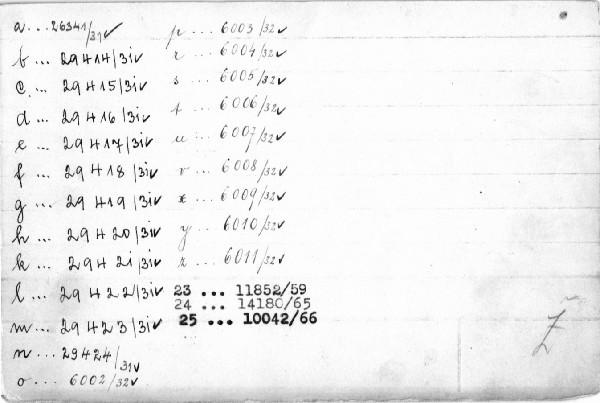 a...26341/31✓
b... 29414/31✓
c... 29415/31✓
d... 29416/31✓
e... 29417/31✓
f... 29418/31✓
g... 29419/31✓
h... 29420/31✓
k... 29421/31✓
l... 29422/31✓
m... 29423/31✓
n...29424/31✓
o... 6002/32✓
p... 6003/32✓
r... 6004/32✓
s... 6005/32✓
t... 6006/32✓
u... 6007/32✓
v... 6008/32✓
x... 6009/32✓
y... 6010/32✓
z... 6011/32✓
23 ... 11852/59
24 ... 14180/65
25 ... 10042/66
Ž